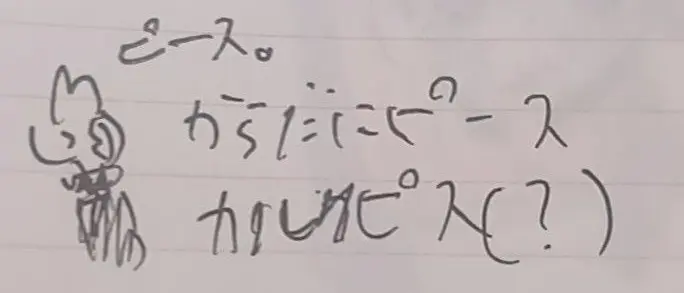 ピース。
からだにピース
カルピス(?)